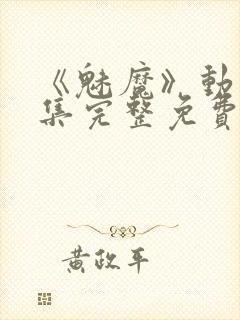 《魅魔》動
集完整免費
黃政平